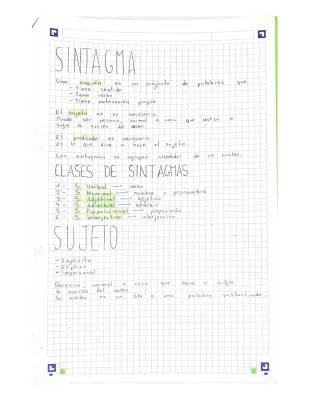 SINTAGMA
Una oración es un conjunto de palabras que
- Tiene sentido
- Tiene verbo
- Tiene entonación propia
El sujeto no es necesario.
Puede ser persona, animal o cosa que realiza o
sufre la acción del verbo.
El predicado es necesario.
Es lo que dice o hace el sujeto
Los sintagmas se agrupan alrededor de un núcleo.
CLASES DE SINTAGMAS
1- S. Verbal → verbo
2- S. Nominal → nombre o pronombre
3- S. Adjetival → adjetivo
4- S. Adverbial → adverbio
5- S. Preposicional → preposición
6- S. Interjectivo → interjección
SUJETO
- Explícito
- Elíptico
- Impersonal
Persona, animal o cosa que hace o sufre
la acción del verbo
Su núcleo es un SN o una palabra sustantivada